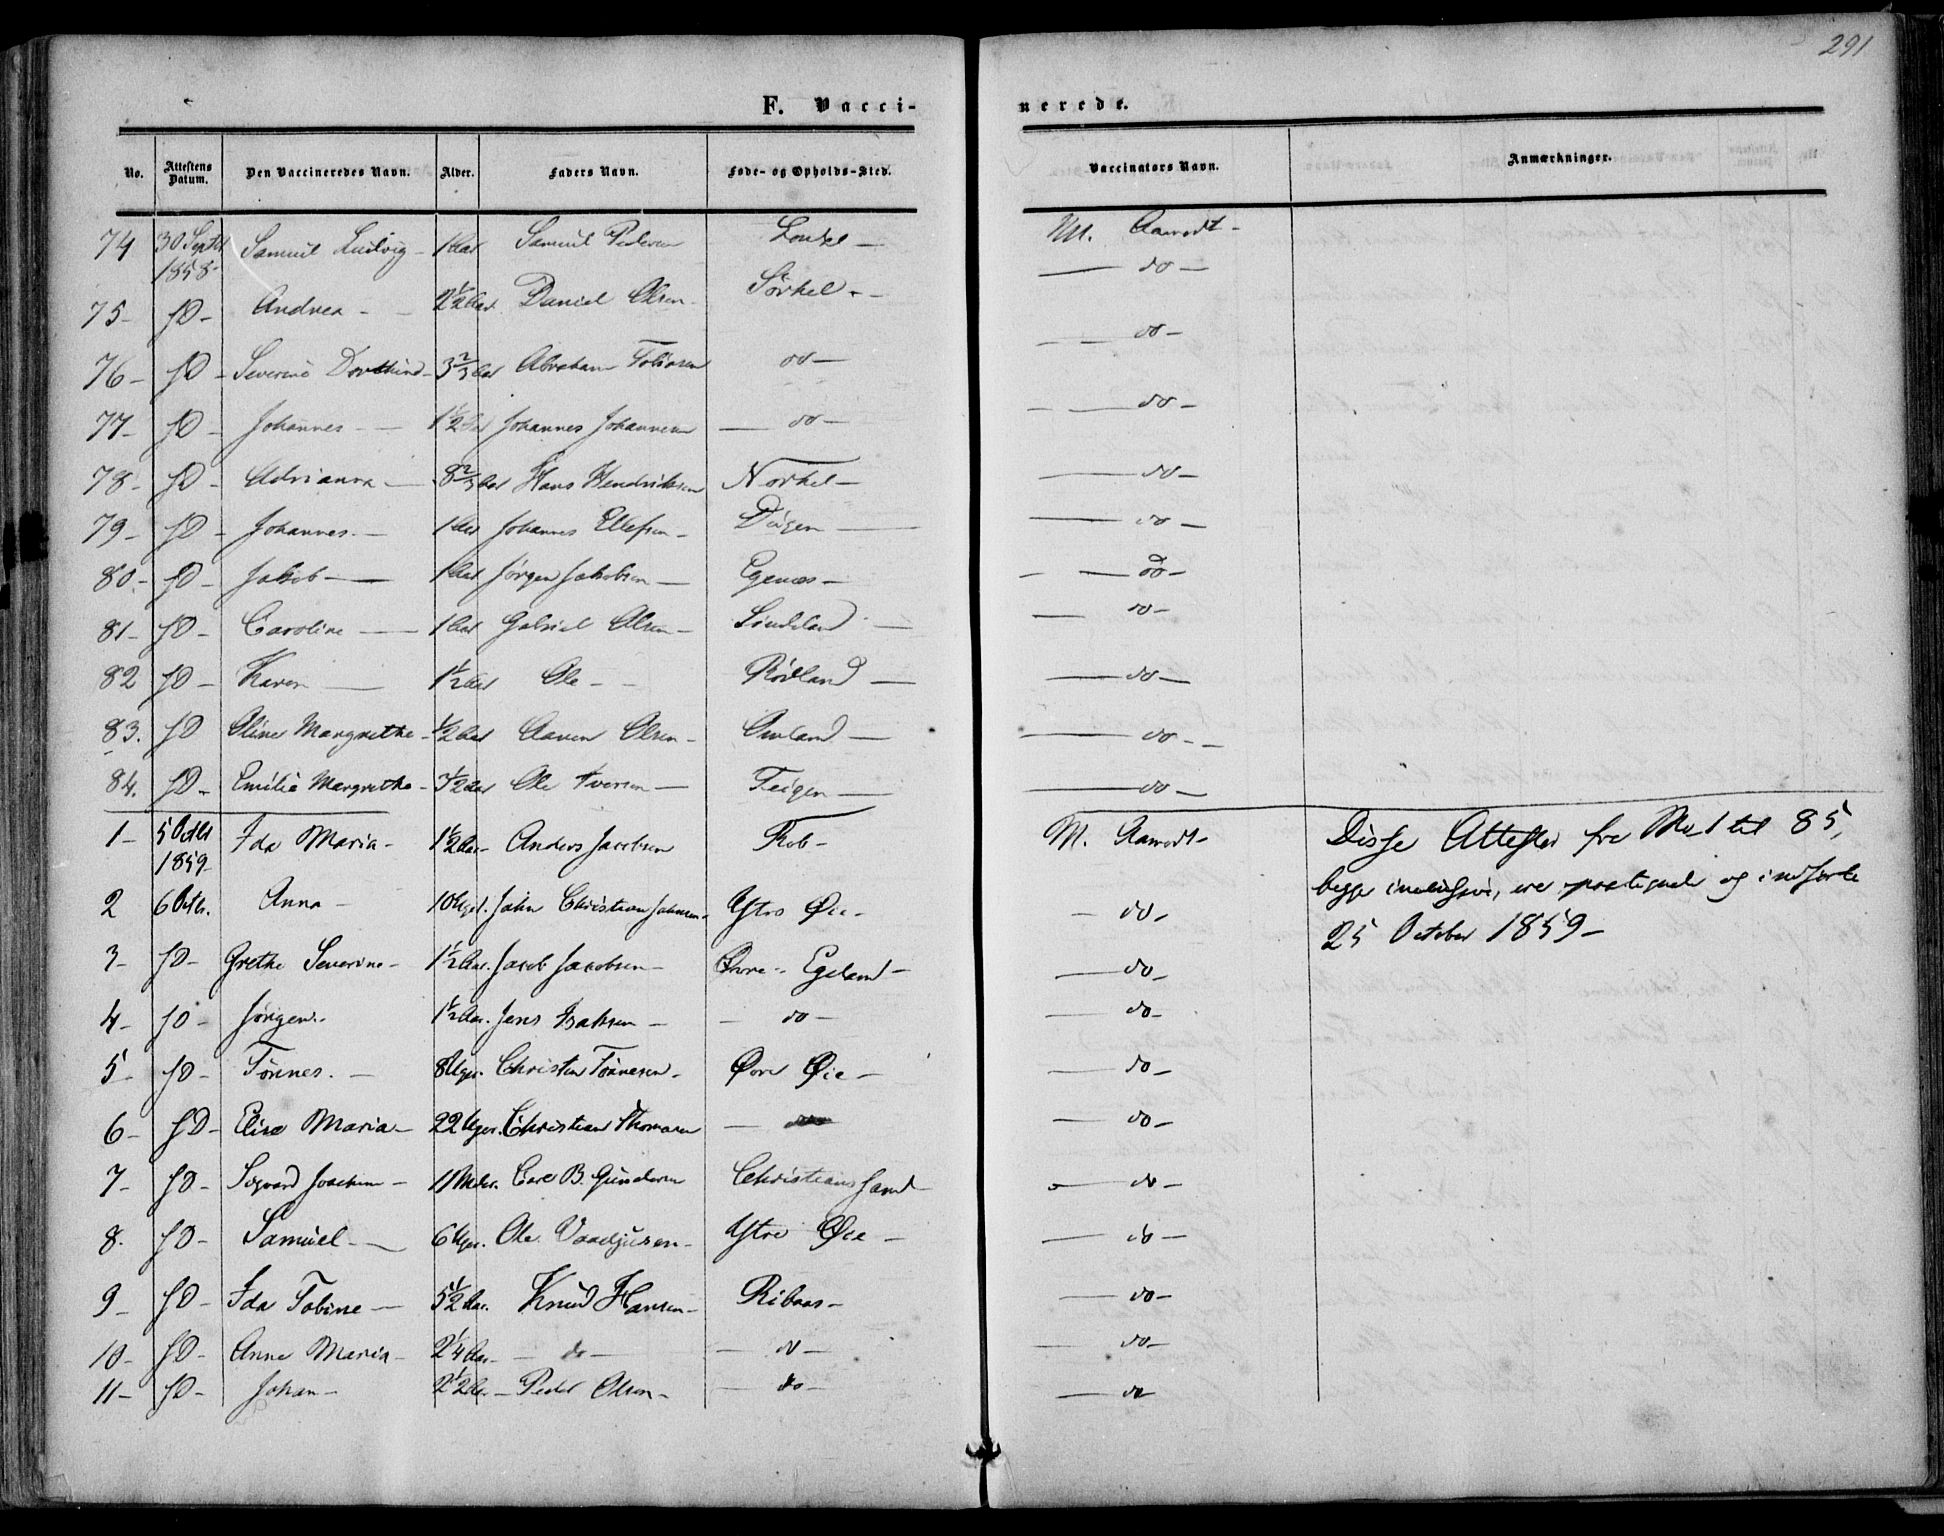 291
F. Vaccinerede.
No. Attestens Datum. Den Vaccineredes Navn. Alder. Faders Navn. Føde- og Opholds-Sted. Vaccinators Navn. Anmærkninger.
74 30 Septbr 1858- Samuel Ludvig - 1 Aar Samuel Pedersen M. Aamodt -
75- fD- Andrea - 2½ Aar Daniel Olsen - Sørhel - do -
76- fD- Severine - 3⅔ Aar Abraham Tobiasen do - do -
77- fD- Johannes - 1½ Aar Johannes Johannesen do - do -
78- fD- Adrianna - 8⅔ Aar Hans Hendriksen Norhel - do -
79- fD- Johannes - 1 Aar Johannes Ellefsen - do -
80- fD- Jakob - 1 Aar Jørgen Jakobsen - Egenæs - do -
81- fD- Caroline - 1 Aar Gabriel Olsen - do -
82 fD- Karen - 1½ Aar Ole - Rødland - do -
83. fD Oline Margrethe - ½ Aar Aanen Olsen - do -
84. fD- Emilie Margrethe - 3½ Aar Ole Iversen - Teigen - do -
1- 5 Octbr 1859- Ida Maria - 1½ Aar - Anders Jacobsen Rob - M. Aamodt - Disse Attester fra No 1 til 85,
begge inclusive, ere og indførte
25 October 1859-
2 6 Octbr. Anna - 10 Uger. John Christian Johnsen - Ytre Øie - do -
3- fD- Grethe Severine - 1½ Aar. Jacob Jacobsen - Øvre Egeland - do -
4- fD- Jørgen - 1½ Aar. Jens Isaksen - do - do -
5- fD- Tønnes. - 8 Uger. Christen Tønnesen - Øvre Øie - do -
6- fD- Elise Maria - 22 Uger. Christian Thomasen - do - do -
7- fD- Sigvard Joachim - 11 Mdr. Carl B. Gundersen Christianssand - do -
8. fD- Samuel - 6 Uger. Ole - Ytre Øie - do -
9- fD- Ida Tobine - 5½ Aar. Knud Hansen - Ribaas - do -
10- fD- Anne Maria - 2¼ Aar. - do - do - do -
11- fD- Johan - 2½ Aar - Peder Olsen - do - do